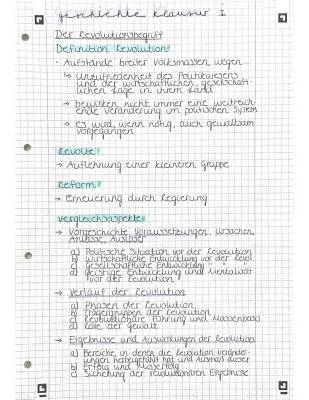 geschichte klausur I
Der Revolutionsbegriff
Definition Revolution:
· Aufstände breiter Volksmassen wegen...
↳ Unzufriedenheit des Politikwesens
und der wirtschaftlichen, gesellschaft-
lichen Lage in ihrem Land
→ bewirken nicht immer eine weitreich-
ende Veränderung im politischen System
→ es wird, wenn nötig, auch gewaltsam
vorgegangen
Revolte:
→ Auflehnung einer kleineren Gruppe
Reform:
→ Erneuerung durch Regierung
Vergleichsaspekte:
→ Vorgeschichte Voraussetzungen, Ursachen,
Anlässe, Auslöser
a) Politische Situation vor der Revolution
b) Wirtschaftliche Entwicklung vor der Revol.
c) Gesellschaftliche Entwicklung " "
d) geistige Entwicklung und Mentalität
vor der Revolution
→ Verlauf der Revolution
a) Phasen der Revolution
b) Trägergruppen der Revolution
c) Revolutionäre Führung und Massenbasis
d) Rolle der Gewalt
→ Ergebnisse und Auswirkungen der Revolution
a) Bereiche, in denen die Revolution Veränder-
ungen herbeigeführt hat und Ausmaß dieser
b) Erfolg und Misserfolg
c) Sicherung der revolutionären Ergebnisse